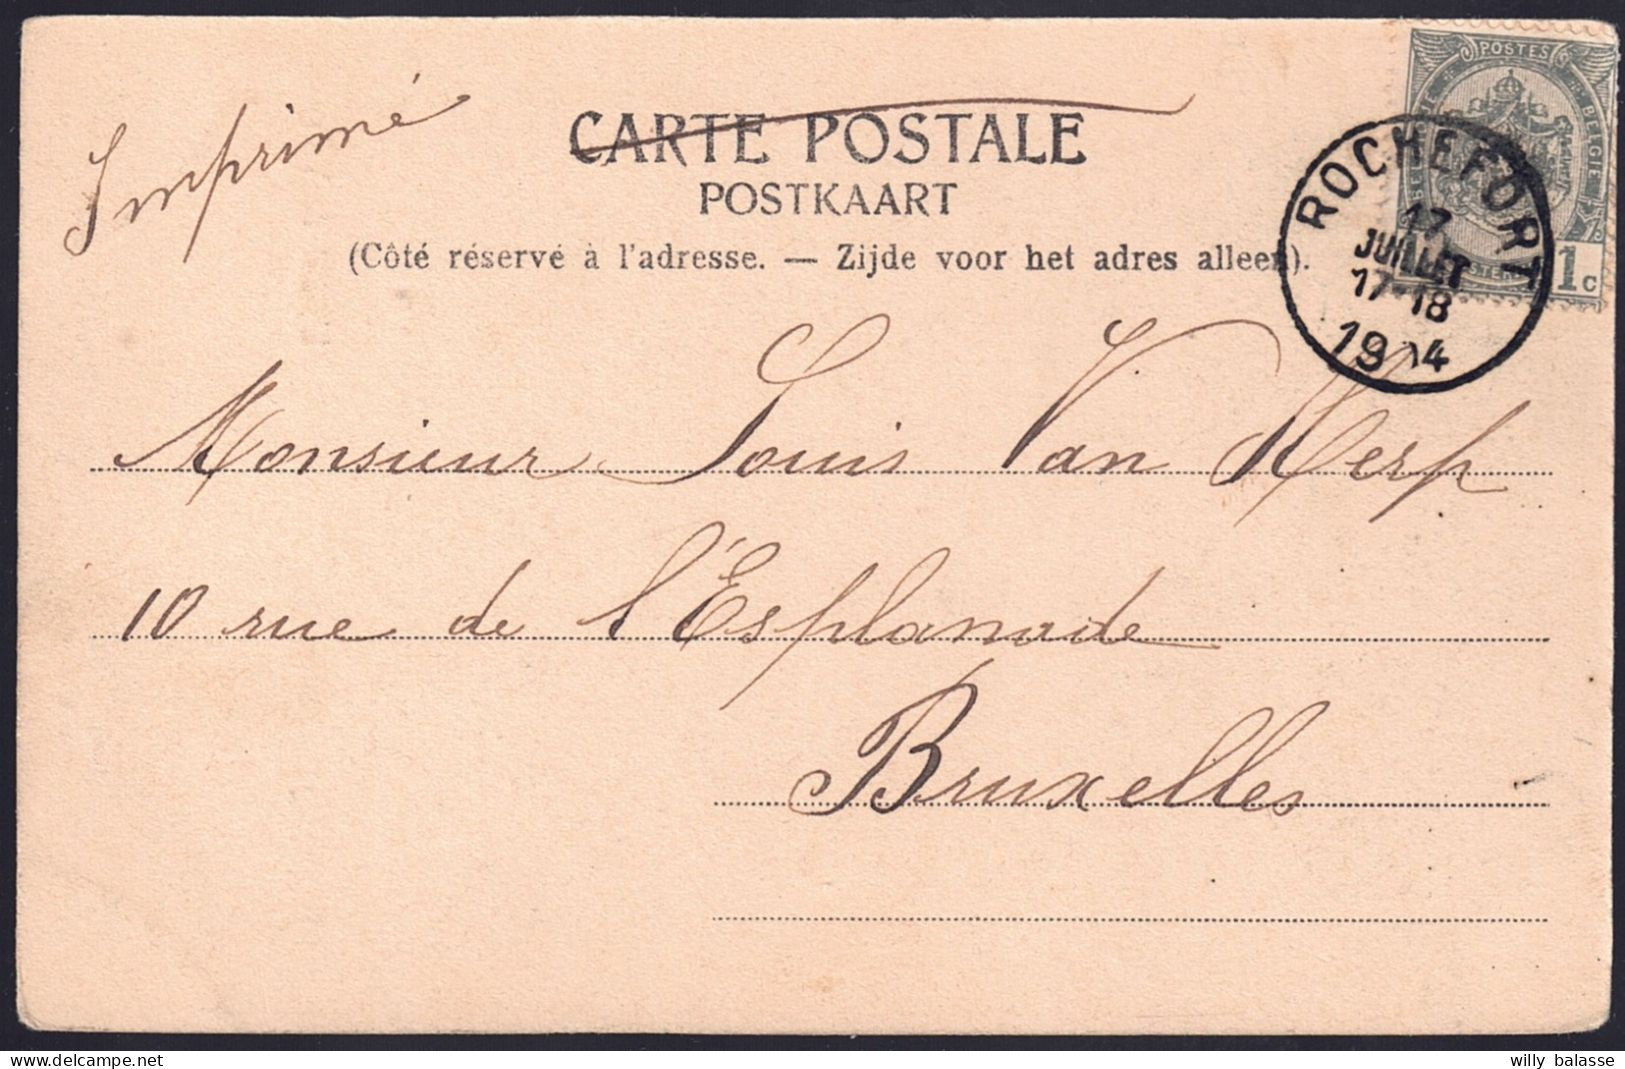 Imprimé
CARTE POSTALE
POSTKAART
(Côté réservé à l'adresse. — Zijde voor het adres alleen).
POSTES
BELGIE
1c
ROCHEFORT
17
JUILLET
17-18
1904
Monsieur Louis Van Herp
10 rue de l'Esplanade
Bruxelles
willy balasse